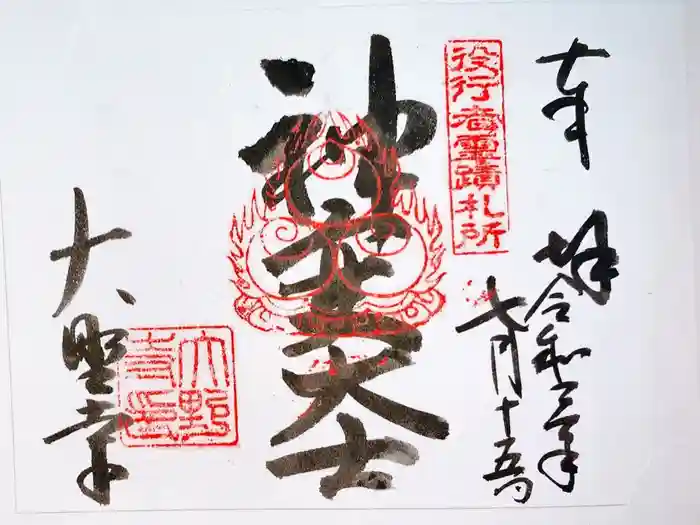 奉拝
令和三年
七月十五日
役行者霊蹟札所
神変大士
大野寺
大野寺印